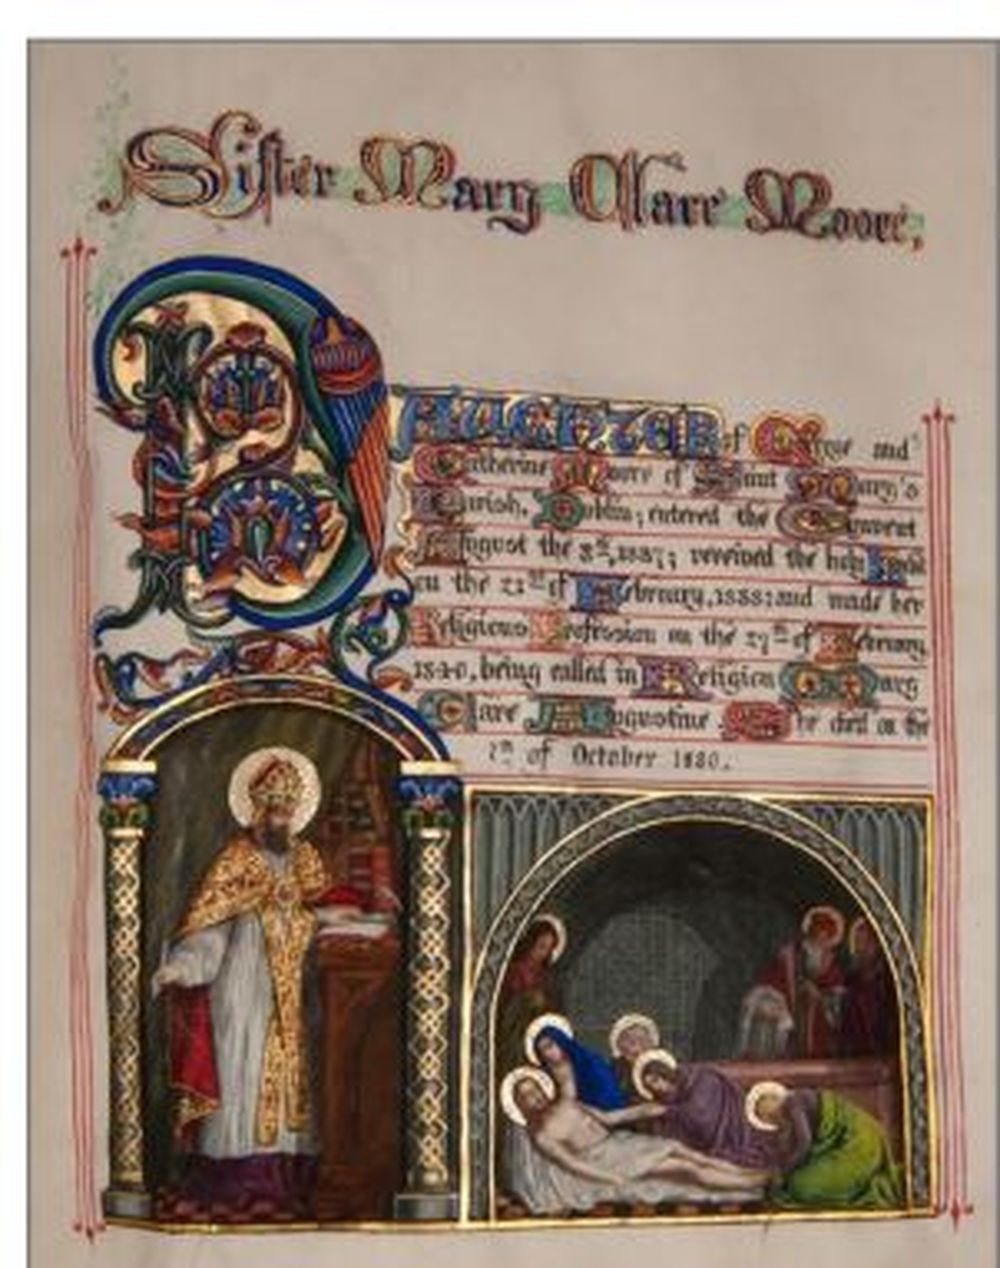 Sister Mary Clare Moore,
DAUGHTER of George and
Catherine Moore of Saint Mary's
Parish, Dublin; entered the Convent
August the 8th, 1837; received the holy Habit
on the 21st of February, 1838; and made her
Religious Profession on the 27th of February,
1840, being called in Religion Mary
Clare Augustine. She died on the
7th of October 1880.